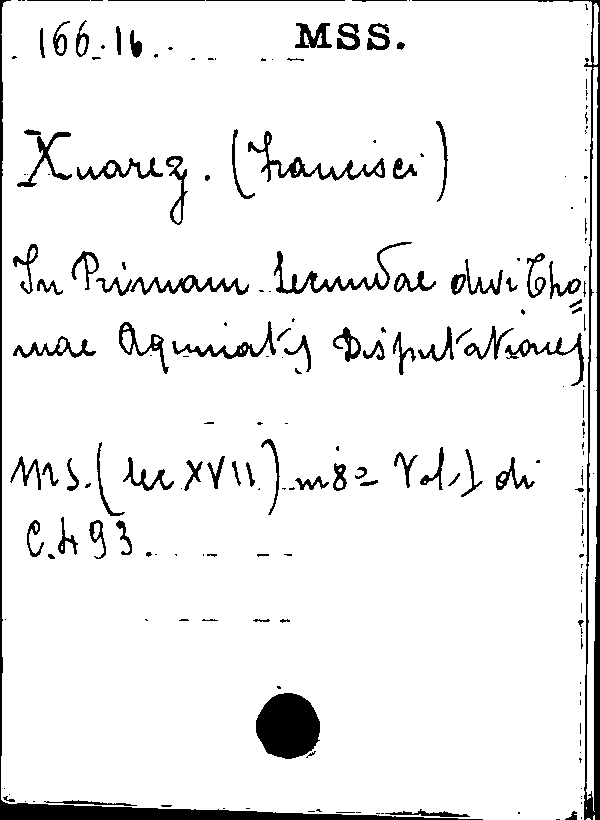 166.16. MSS.
Xuarez. (Francisci)
In Primam Secundae divi Tho=
mae Aquinatis Disputationes
MS. (sec XVII) in 8º Vol. I di
C. 493.